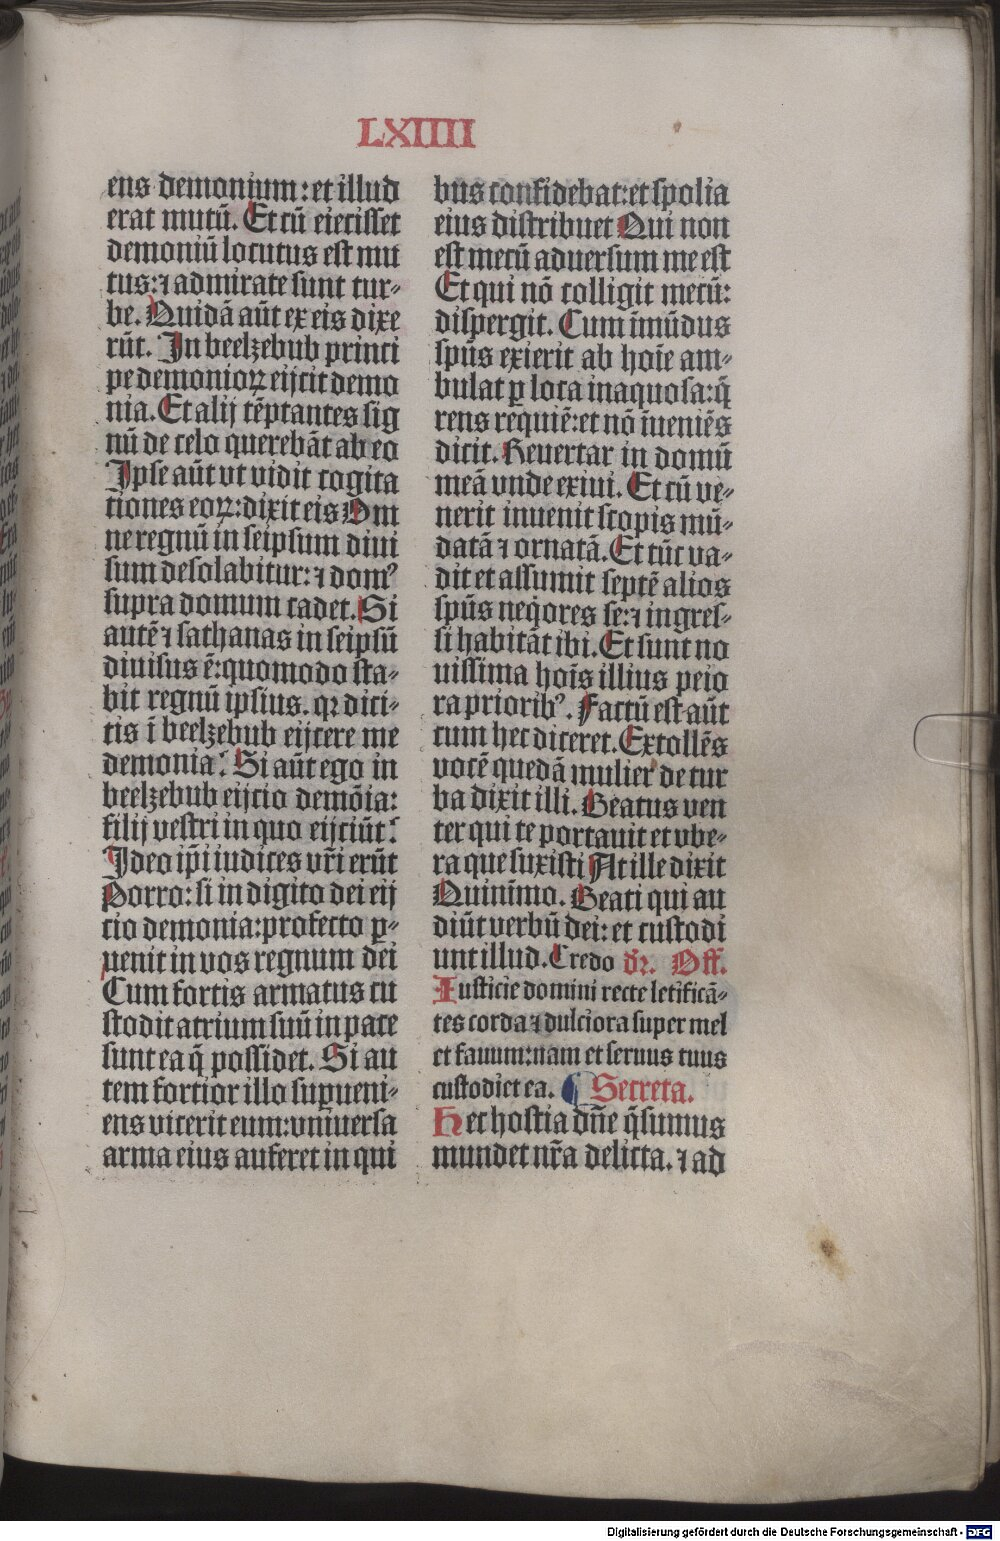 LXIIII
ens demonium: et illud
erat mutū. Et cū eiecisset
demoniū locutus est mu
tus: ⁊ admirate sunt tur⸗
be. Quidā aūt ex eis dixe
rūt. In beelzebub princi
pe demonioꝝ eijcit demo
nia. Et alij tēptantes sig
nū de celo querebāt ab eo
Ipse aūt vt vidit cogita
tiones eoꝝ: dixit eis Om
ne regnū in seipsum diui
sum desolabitur: ⁊ domꝰ
supra domum cadet. Si
autē ⁊ sathanas in seipsū
diuisus ē: quomodo sta⸗
bit regnū ipsius. qꝛ dici⸗
tis ī beelzebub eijcere me
demonia? Si aūt ego in
beelzebub eijcio demōia:
filij vestri in quo eijciūt?
Ideo ip̄i iudices vr̄i erūt
Porro: si in digito dei eij
cio demonia: profecto ꝑ⸗
uenit in vos regnum dei
Cum fortis armatus cu
stodit atrium suū in pace
sunt ea q̄ possidet. Si au
tem fortior illo suꝑueni⸗
ens vicerit eum: vniuersa
arma eius auferet in qui
bus confidebat: et spolia
eius distribuet Qui non
est mecū aduersum me est
Et qui nō colligit mecū:
dispergit. Cum īmūdus
sp̄us exierit ab hoīe am⸗
bulat ꝑ loca inaquosa: q̄
rens requiē: et nō īueniēs
dicit. Reuertar in domū
meā vnde exiui. Et cū ve⸗
nerit inuenit scopis mū⸗
datā ⁊ ornatā. Et tūc va⸗
dit et assumit septē alios
sp̄us neq̇ores se: ⁊ ingres⸗
si habitāt ibi. Et sunt no
uissima hoīs illius peio
ra prioribꝰ. Factū est aūt
cum hec diceret. Extollēs
vocē quedā mulier de tur
ba dixit illi. Beatus ven
ter qui te portauit et vbe⸗
ra que suxisti At ille dixit
Quinīmo. Beati qui au
diūt verbū dei: et custodi
unt illud. Credo dr̄. Off.
Iusticie domini recte letificā⸗
tes corda ⁊ dulciora super mel
et fauum: nam et seruus tuus
custodiet ea. Secreta.
Hec hostia dn̄e q̄sumus
mundet nr̄a delicta. ⁊ ad
Digitalisierung gefördert durch die Deutsche Forschungsgemeinschaft - DFG